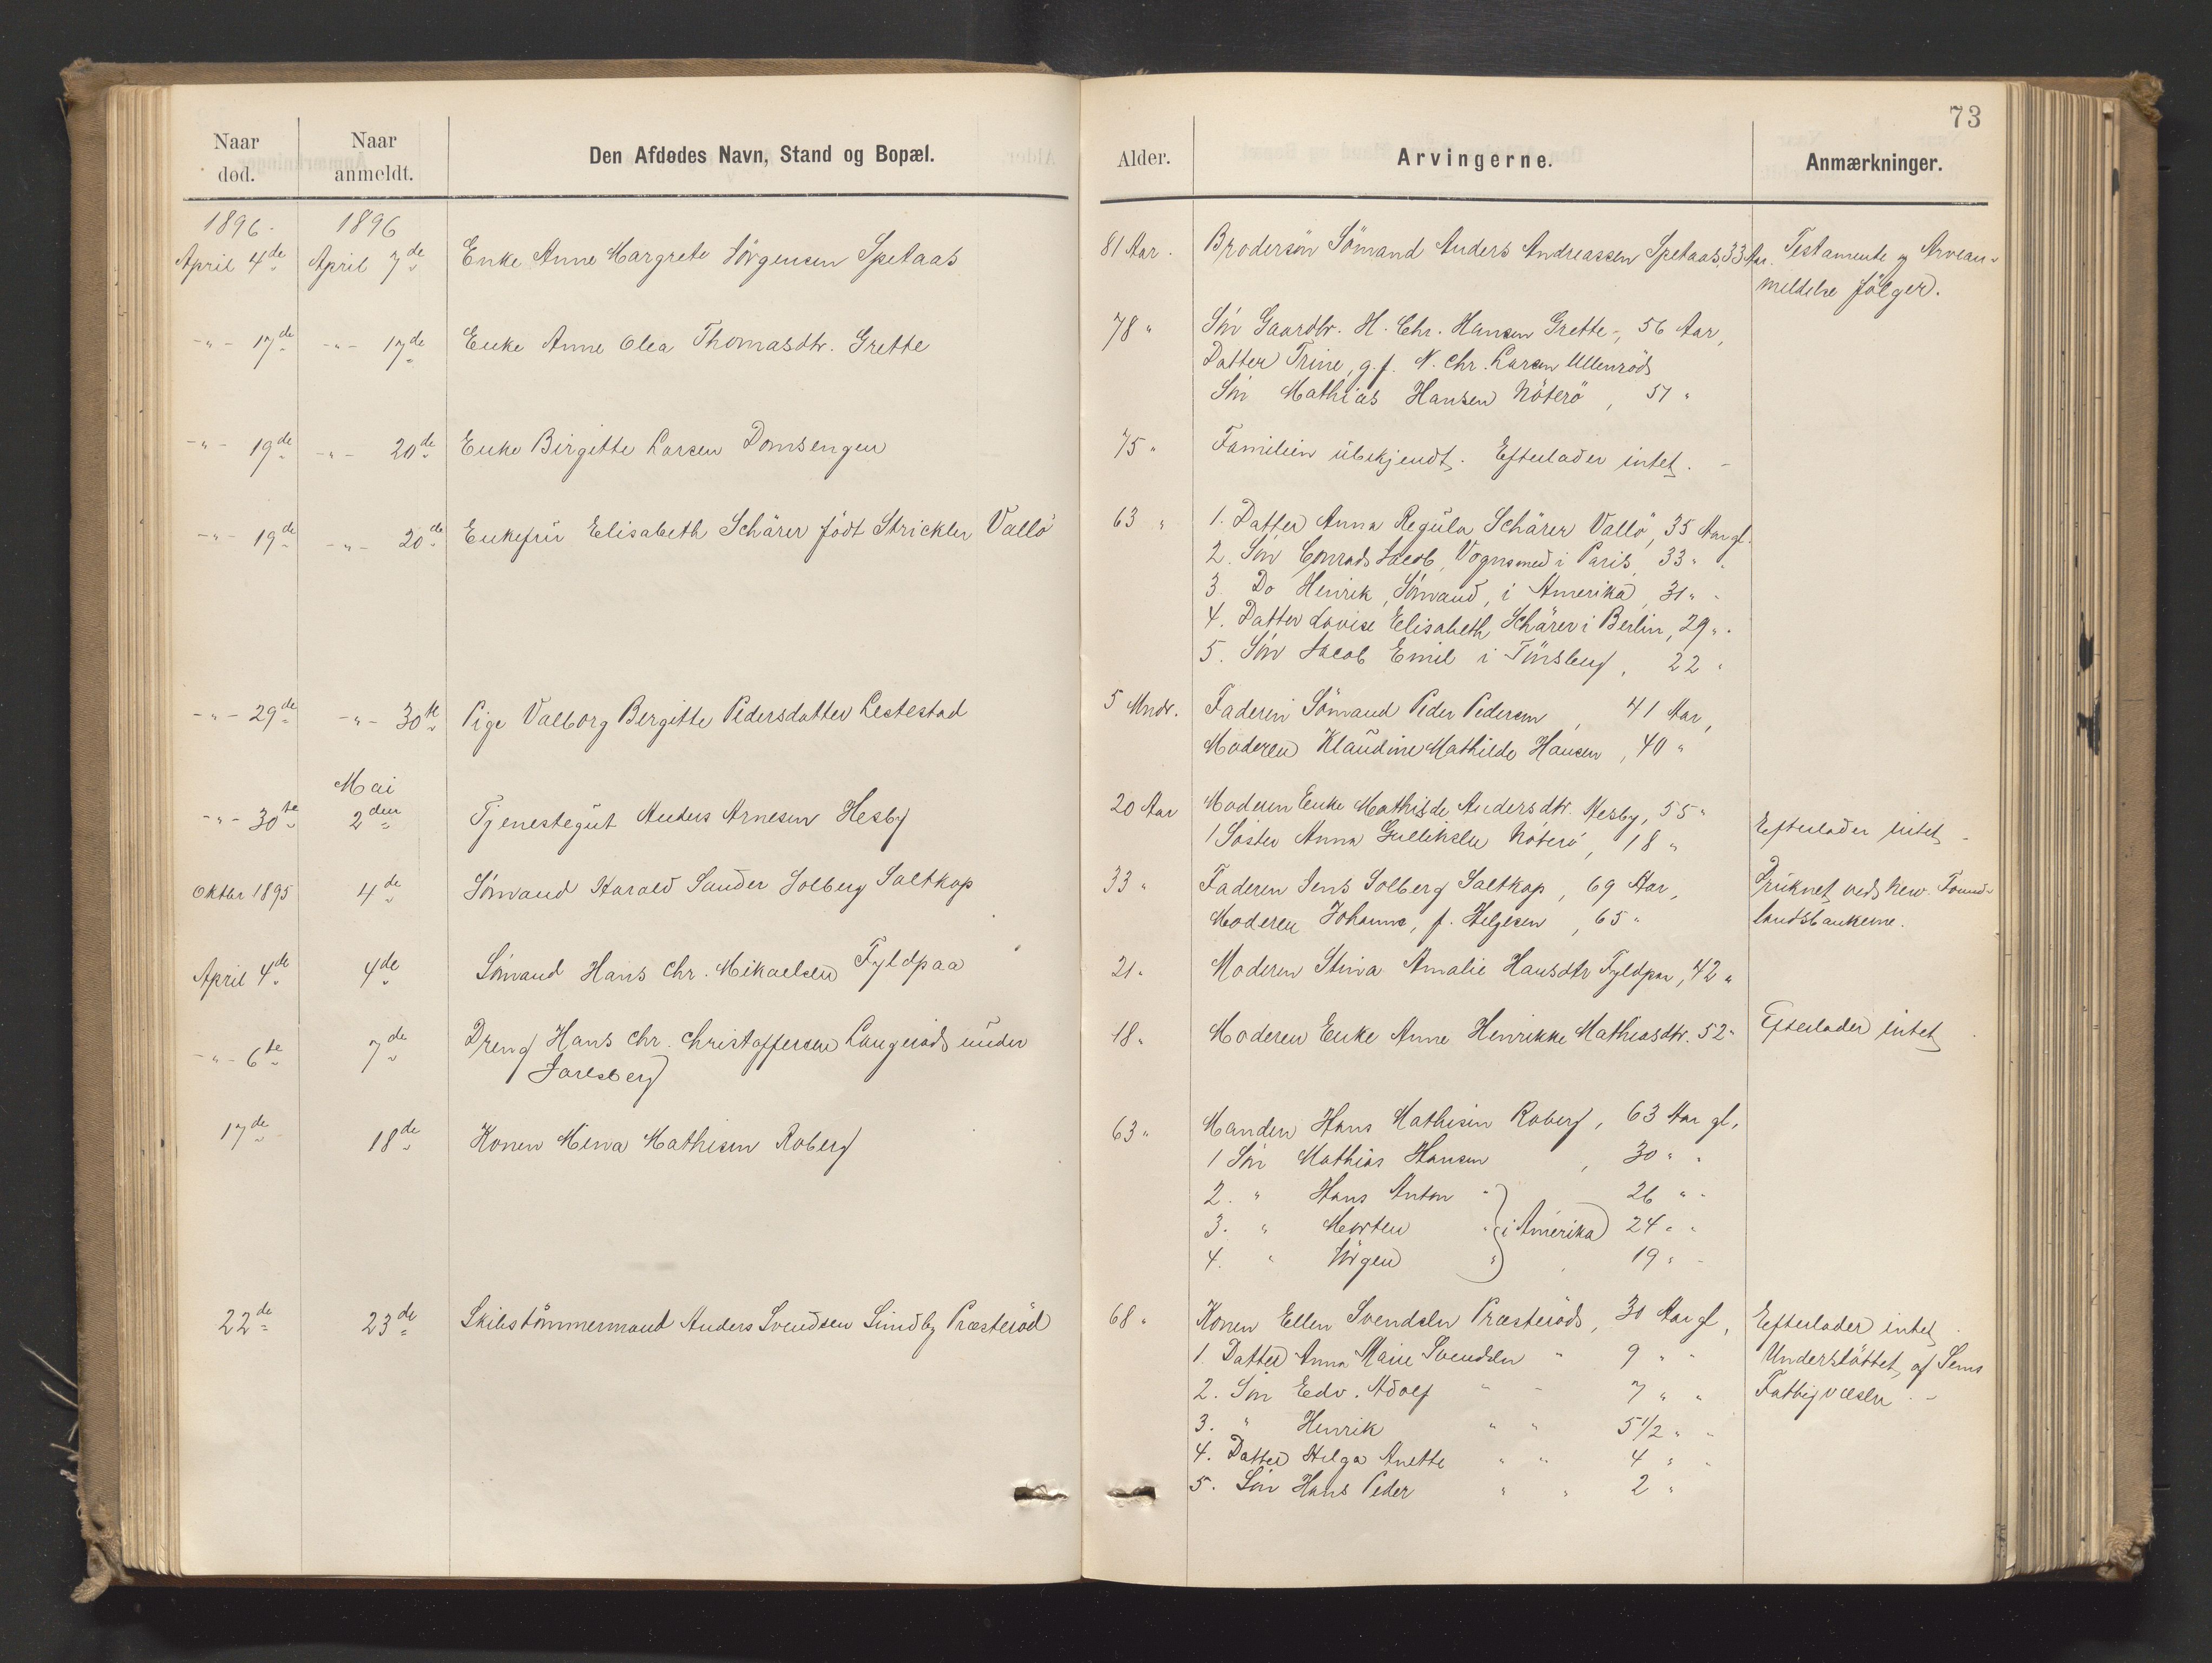 73
Naar død.
Naar anmeldt.
Den Afdødes Navn, Stand og Bopæl.
Alder.
Arvingerne.
Anmærkninger.
1896. 1896
April 4de April 7de Enke Anne Margrete Jörgensen Spetaas 81 Aar. Brodersön Sömand Anders Andreassen Spetaas, 33 Aar. Testamente og Arvean-
meldelse fölger.
-"- 17de -"- 17de Enke Anne Olea Thomasdtr. Grette 78 " Sön Gaardbr. H. Chr. Hansen Grette, 56 Aar,
Datter Trine, g. f. N. Chr. Larsen Ullenröd
Sön Mathias Hansen Nöterö, 51 "
-"- 19de -"- 20de Enke Birgitte Larsen Domsengen 75 " Familien übekjendt. Efterlader intet. -
-"- 19de -"- 20de Enkefrü Elisabeth Schärer födt Strickler Vallö 63 " 1. Datter Anna Regüla Schärer Vallö, 35 Aar gl.
2. Sön Conrad Jacob, Vognsmed i Paris, 33 " "
3. Do Henrik, Sömand, i Amerika, 31 " "
4. Datter Lovise Elisabeth Schärer i Berlin, 29 " "
5. Sön Jacob Emil i Tönsberg, 22 "
-"- 29de -"- 30te Pige Valborg Bergitte Pedersdatter Lestestad 5 Mndr. Faderen Sömand Peder Pedersen, 41 Aar,
Moderen Klaüdine Mathilde Hansen, 40 "
Mai
-"- 30te 2den Tjenestegüt Anders Arnesen Hesby 20 Aar Moderen Enke Mathilde Andersdtr. Hesby, 55 "
1 Söster Anna Gulliksen Nöterö, 18 " Efterlader intet -
Oktbr 1895 4de Sömand Harald Sander Solberg Saltkop 33 " Faderen Jens Solberg Saltkop, 69 Aar, Drüknet ved New. Found-
Moderen Johanne, f. Helgesen, 65 " landsbankerne.
April 4de 4de Sömand Hans Chr. Mikaelsen Fyldpaa 21 " Moderen Stina Amalie Hansdtr Fyldpaa, 42 "
-"- 6te 7de Dreng Hans Chr. Christoffersen Langeröd ünder 18 " Moderen Enke Anne Henrikke Mathiasdtr. 52 " Efterlader intet
Jarlsberg
17de - 18de Konen Mina Mathisen Roberg 63 " Manden Hans Mathisen Roberg, 63 Aar gl,
1 Sön Mathias Hansen, 30 " "
2. " Hans Anton " 26 " "
3. " Morten " i Amerika 24 " "
4. " Jörgen " 19 " "
22de 23de Skibstömmermand Anders Svendsen Sundby Præsteröd 68 " Konen Ellen Svendsen Præsteröd, 30 Aar gl, Efterlader intet.
1. Datter Anna Marie Svendsen " 9 " " Understöttet af Sems
2. Sön Edv. Adolf " " 7 " " Fattigvæsen. -
3. " Henrik " " 5 1/2 " "
4. Datter Helga Anette " " 4 " "
5. Sön Hans Peder " " 2 "